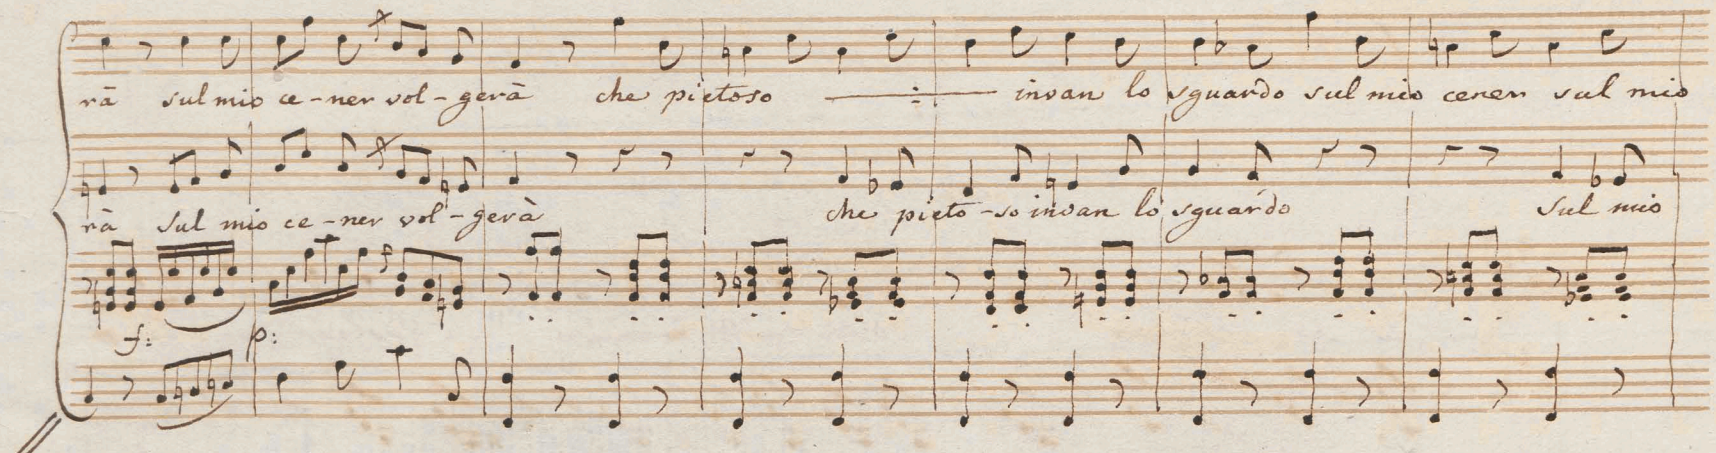 rà sul mio ce-ner vol-gerà che pietoso invan lo sguardo sul mio cener sul mio
rà sul mio ce-ner vol-gerà che pieto-so invan lo sguardo sul mio
f: p: